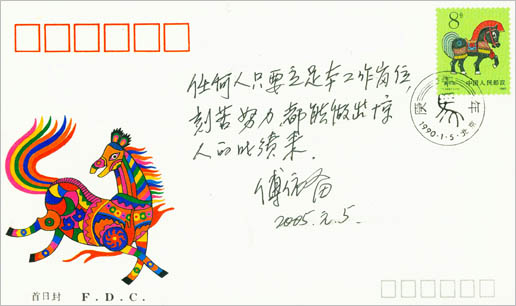 8分
中国人民邮政
庚午
1990·1·5·北京
任何人只要立足本工作岗位,
刻苦努力都能做出惊
人的成绩来.
傅依备
2005.元.5.
首日封 F.D.C.